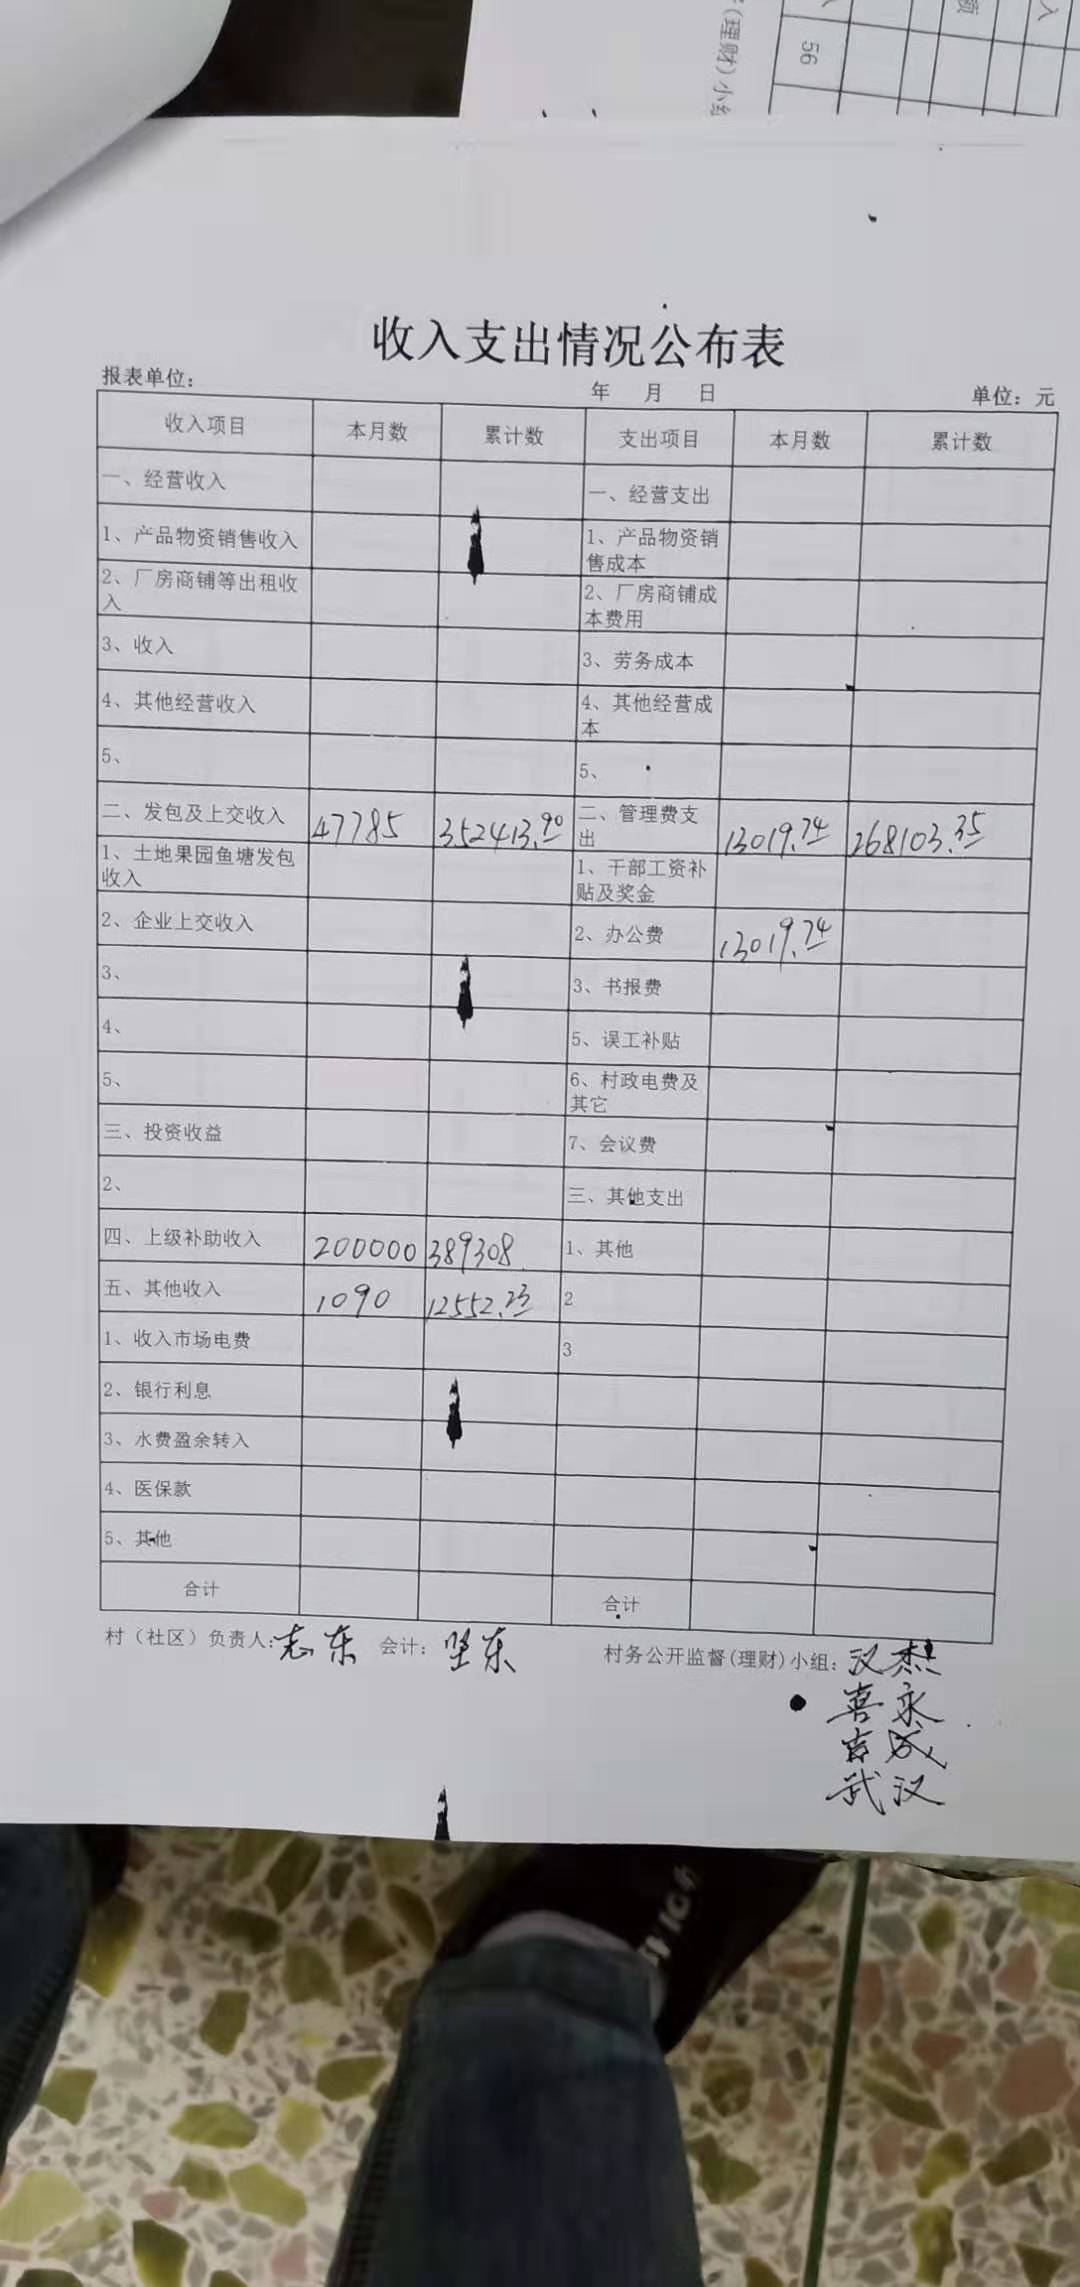 (理财)小组
56
额
入
收入支出情况公布表
报表单位： 年 月 日 单位：元
收入项目 本月数 累计数 支出项目 本月数 累计数
一、经营收入 一、经营支出
1、产品物资销售收入 1、产品物资销售成本
2、厂房商铺等出租收入 2、厂房商铺成本费用
3、收入 3、劳务成本
4、其他经营收入 4、其他经营成本
5、 5、
二、发包及上交收入 47785 352413.90 二、管理费支出 13019.74 268103.35
1、土地果园鱼塘发包收入 1、干部工资补贴及奖金
2、企业上交收入 2、办公费 13019.74
3、 3、书报费
4、 5、误工补贴
5、 6、村政电费及其它
三、投资收益 7、会议费
2、 三、其他支出
四、上级补助收入 200000 389308. 1、其他
五、其他收入 1090 12552.23 2
1、收入市场电费 3
2、银行利息
3、水费盈余转入
4、医保款
5、其他
合计 合计
村（社区）负责人：志东 会计：坚东 村务公开监督(理财)小组：汉杰
喜永
吉成
武汉